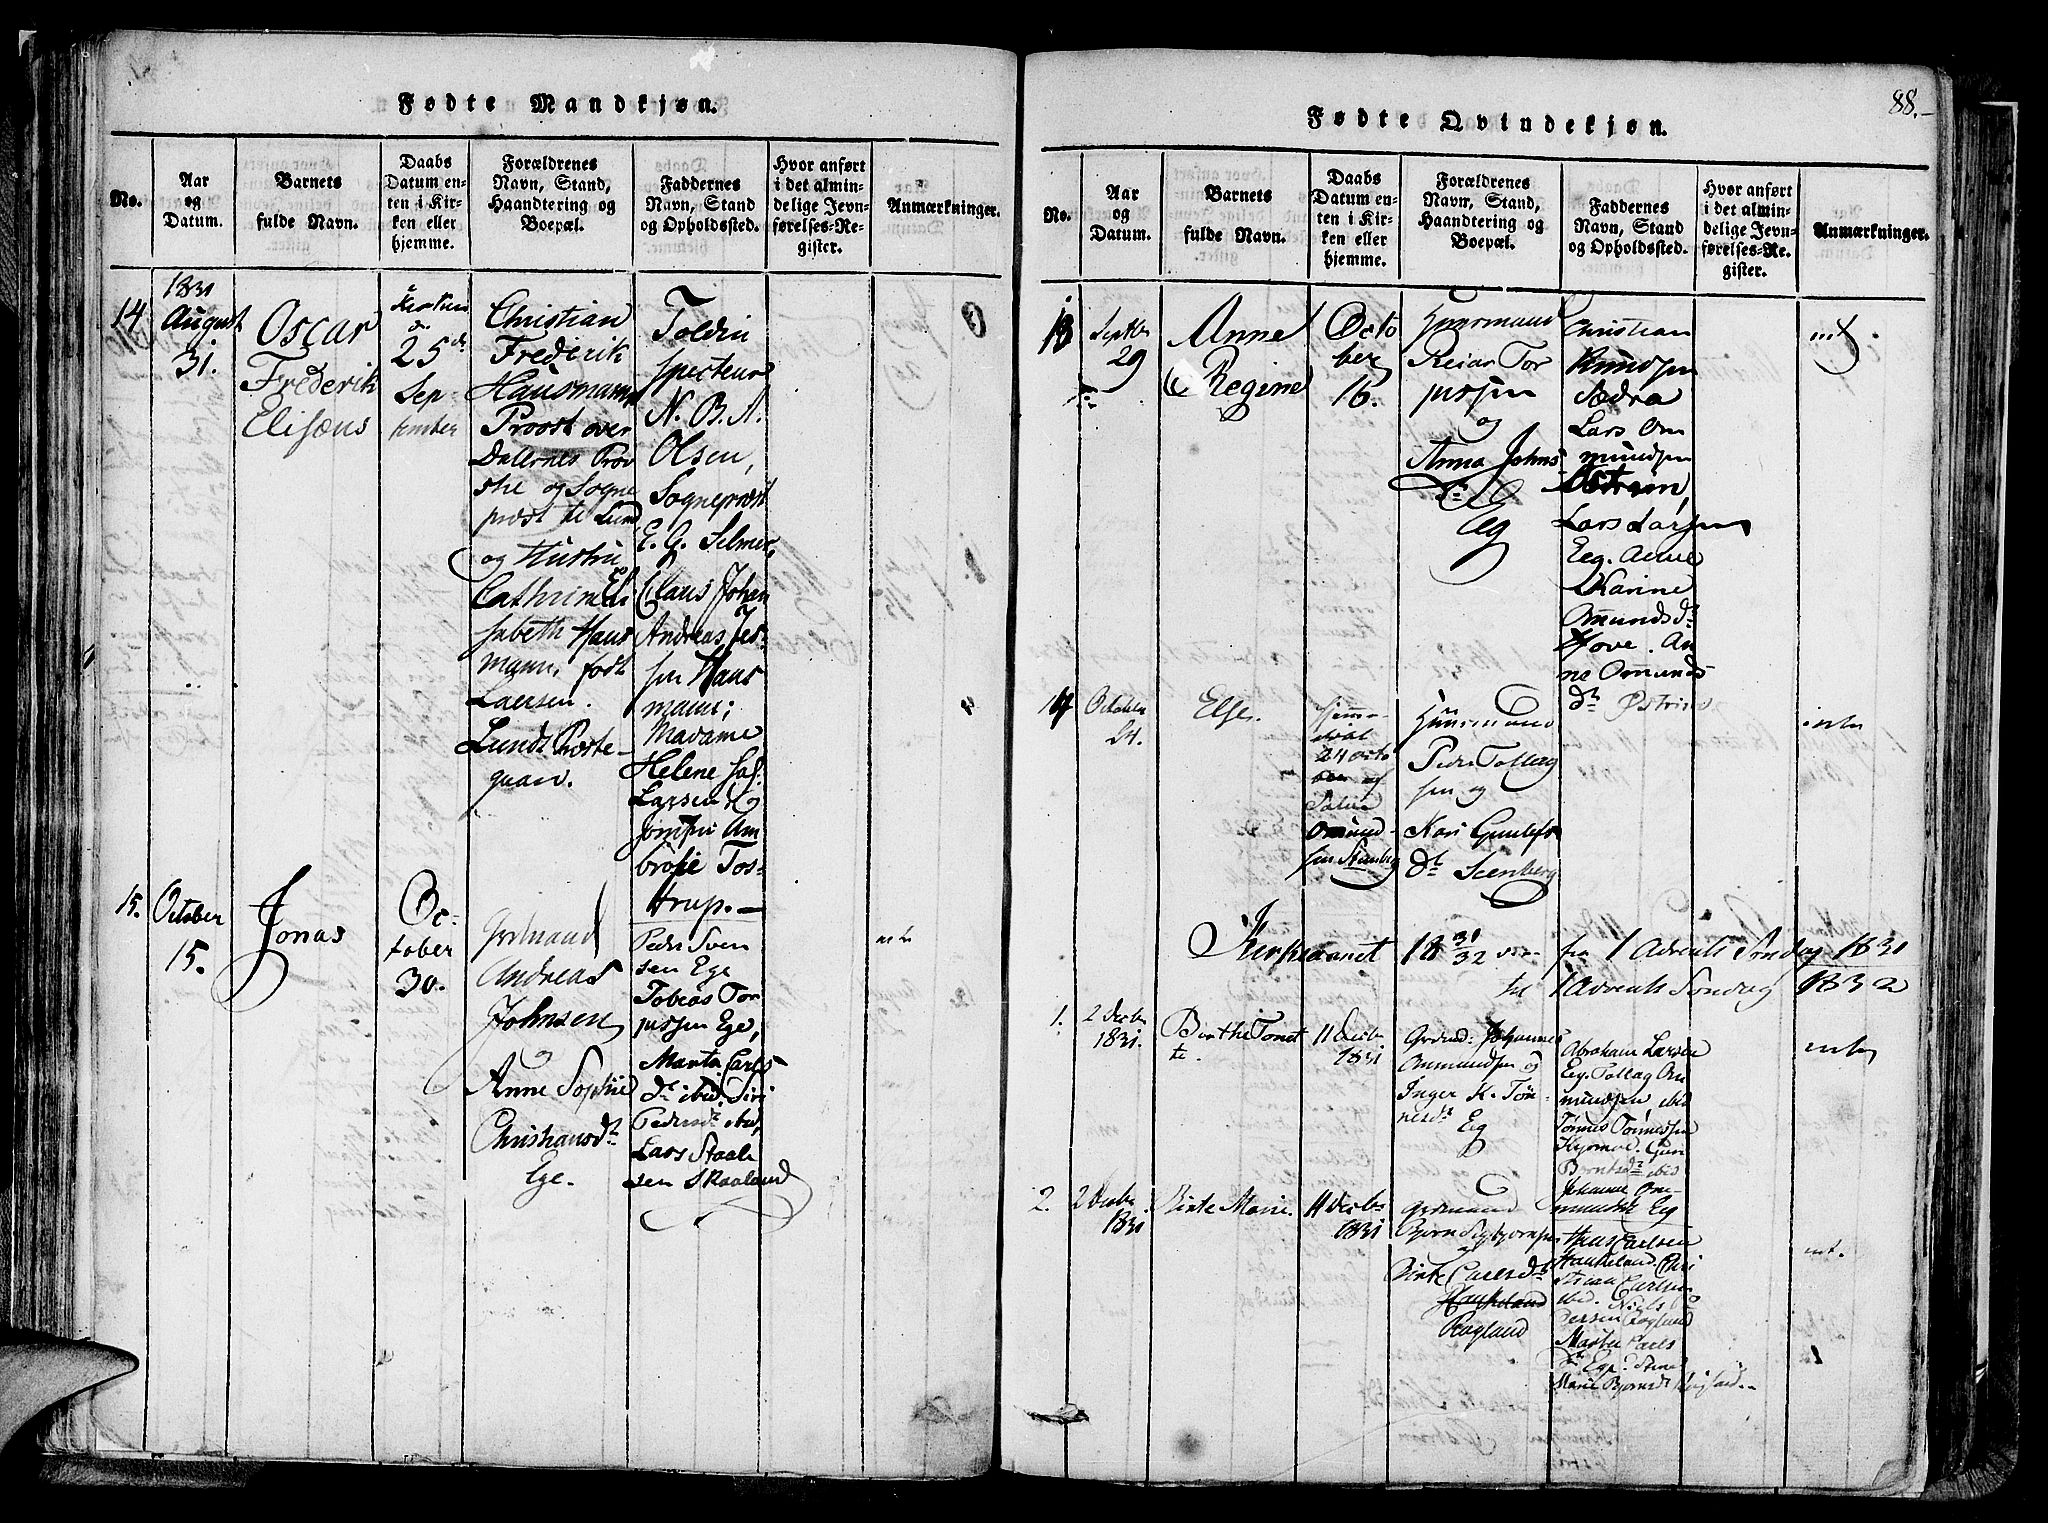 Fødte Mandkjøn.
No.
Aar
og
Datum.
Barnets
fulde Navn.
Daabs
Datum en-
ten i Kir-
ken eller
hjemme.
Forældrenes
Navn, Stand,
Haandtering og
Boepæl.
Faddernes
Navn, Stand
og Opholdssted.
Hvor anført
i det almin-
delige Jevn-
førelses-Re-
gister.
Anmærkninger.
14
1831
August
31.
Oscar
Frederik
Elisæus
25 de
Sep-
tember
Christian
Frederik
Hausmann,
Provst over
Dalernes Prov
stie og Sogne
præst til Lund
og Hustru
Cathrina Eli
sabeth Haus
mann, født
Laersen.
Lunds Præste-
gaard.
Toldin
specteur
N. B. A.
Olsen,
Sognepræst
E. G. Selmer,
Claus Johan
Andreas Jes-
sen Haus
mann;
Madame
Helene
Larsen og
Jomfru Am
brosie Tos-
trup.
15.
October
15.
Jonas
Oc-
tober
30.
Gaardmand
Andreas
Johnsen
og
Anne Sophie
Christiansdt
Ege.
Peder Sven
sen Ege
Tobias Tor
jussen Ege,
Marta Carls
dt ibid. Siri
Pedersdt ibid,
Lars Staale
sen Skaaland
88.
Fødte Qvindekjøn.
No.
Aar
og
Datum.
Barnets
fulde Navn.
Daabs
Datum en-
ten i Kir-
ken eller
hjemme.
Forældrenes
Navn, Stand,
Haandtering og
Boepæl.
Faddernes
Navn, Stand
og Opholdssted.
Hvor anført
i det almin-
delige Jevn-
førelses-Re-
gister.
Anmærkninger.
13
Septbr
29
Anne
Regine
Octo
ber
16.
Huusmand
Reiar Tor
jussen
og
Anna Johns
dt
Eeg
Christian
Knudsen
Sædra
Lars Om
mundsen
Østrem,
Lars Larsen
Eeg. Anne
Karine
Omundsdt
Hove. An
ne Omunds
dt Østrem
14
October
24.
Else.
hjemme-
døbt
24 octo
ber af
Omund
sen Steenberg
Huusmand
Peder Tollag
sen og
Kari Gunlefs
dt Steenberg
Kirkeaaret 18 31/32 fra 1 Advents Søndag 1831
til 1 Advents Søndag 1832
1.
2 Decbr
1831.
Berthe Tonet
te.
11 Decbr
1831
Grdmd: Johannes
Ommundsen og
Inger K. Tøn-
nesdt
Eeg
Abraham Larsen
Eeg. Tollag Om
mundsen ibid
Tønnes Tønnessen
Berntsdt ibid
Johanne Om-
mundsdt Eeg
2.
2 Decbr
1831
Birte Marie.
11 Decbr
1831
Grdmand
Bjørn Sigbjørnsen
og
Birte Carlsdt
Haukeland
Rogland
Hans Carlsen
Haukeland. Chri
stian Carlsen
ibid. Niels
Persen Rogland
Marte Carls
dt Ege. Anne
Marie Bjørnsdt Rogland.